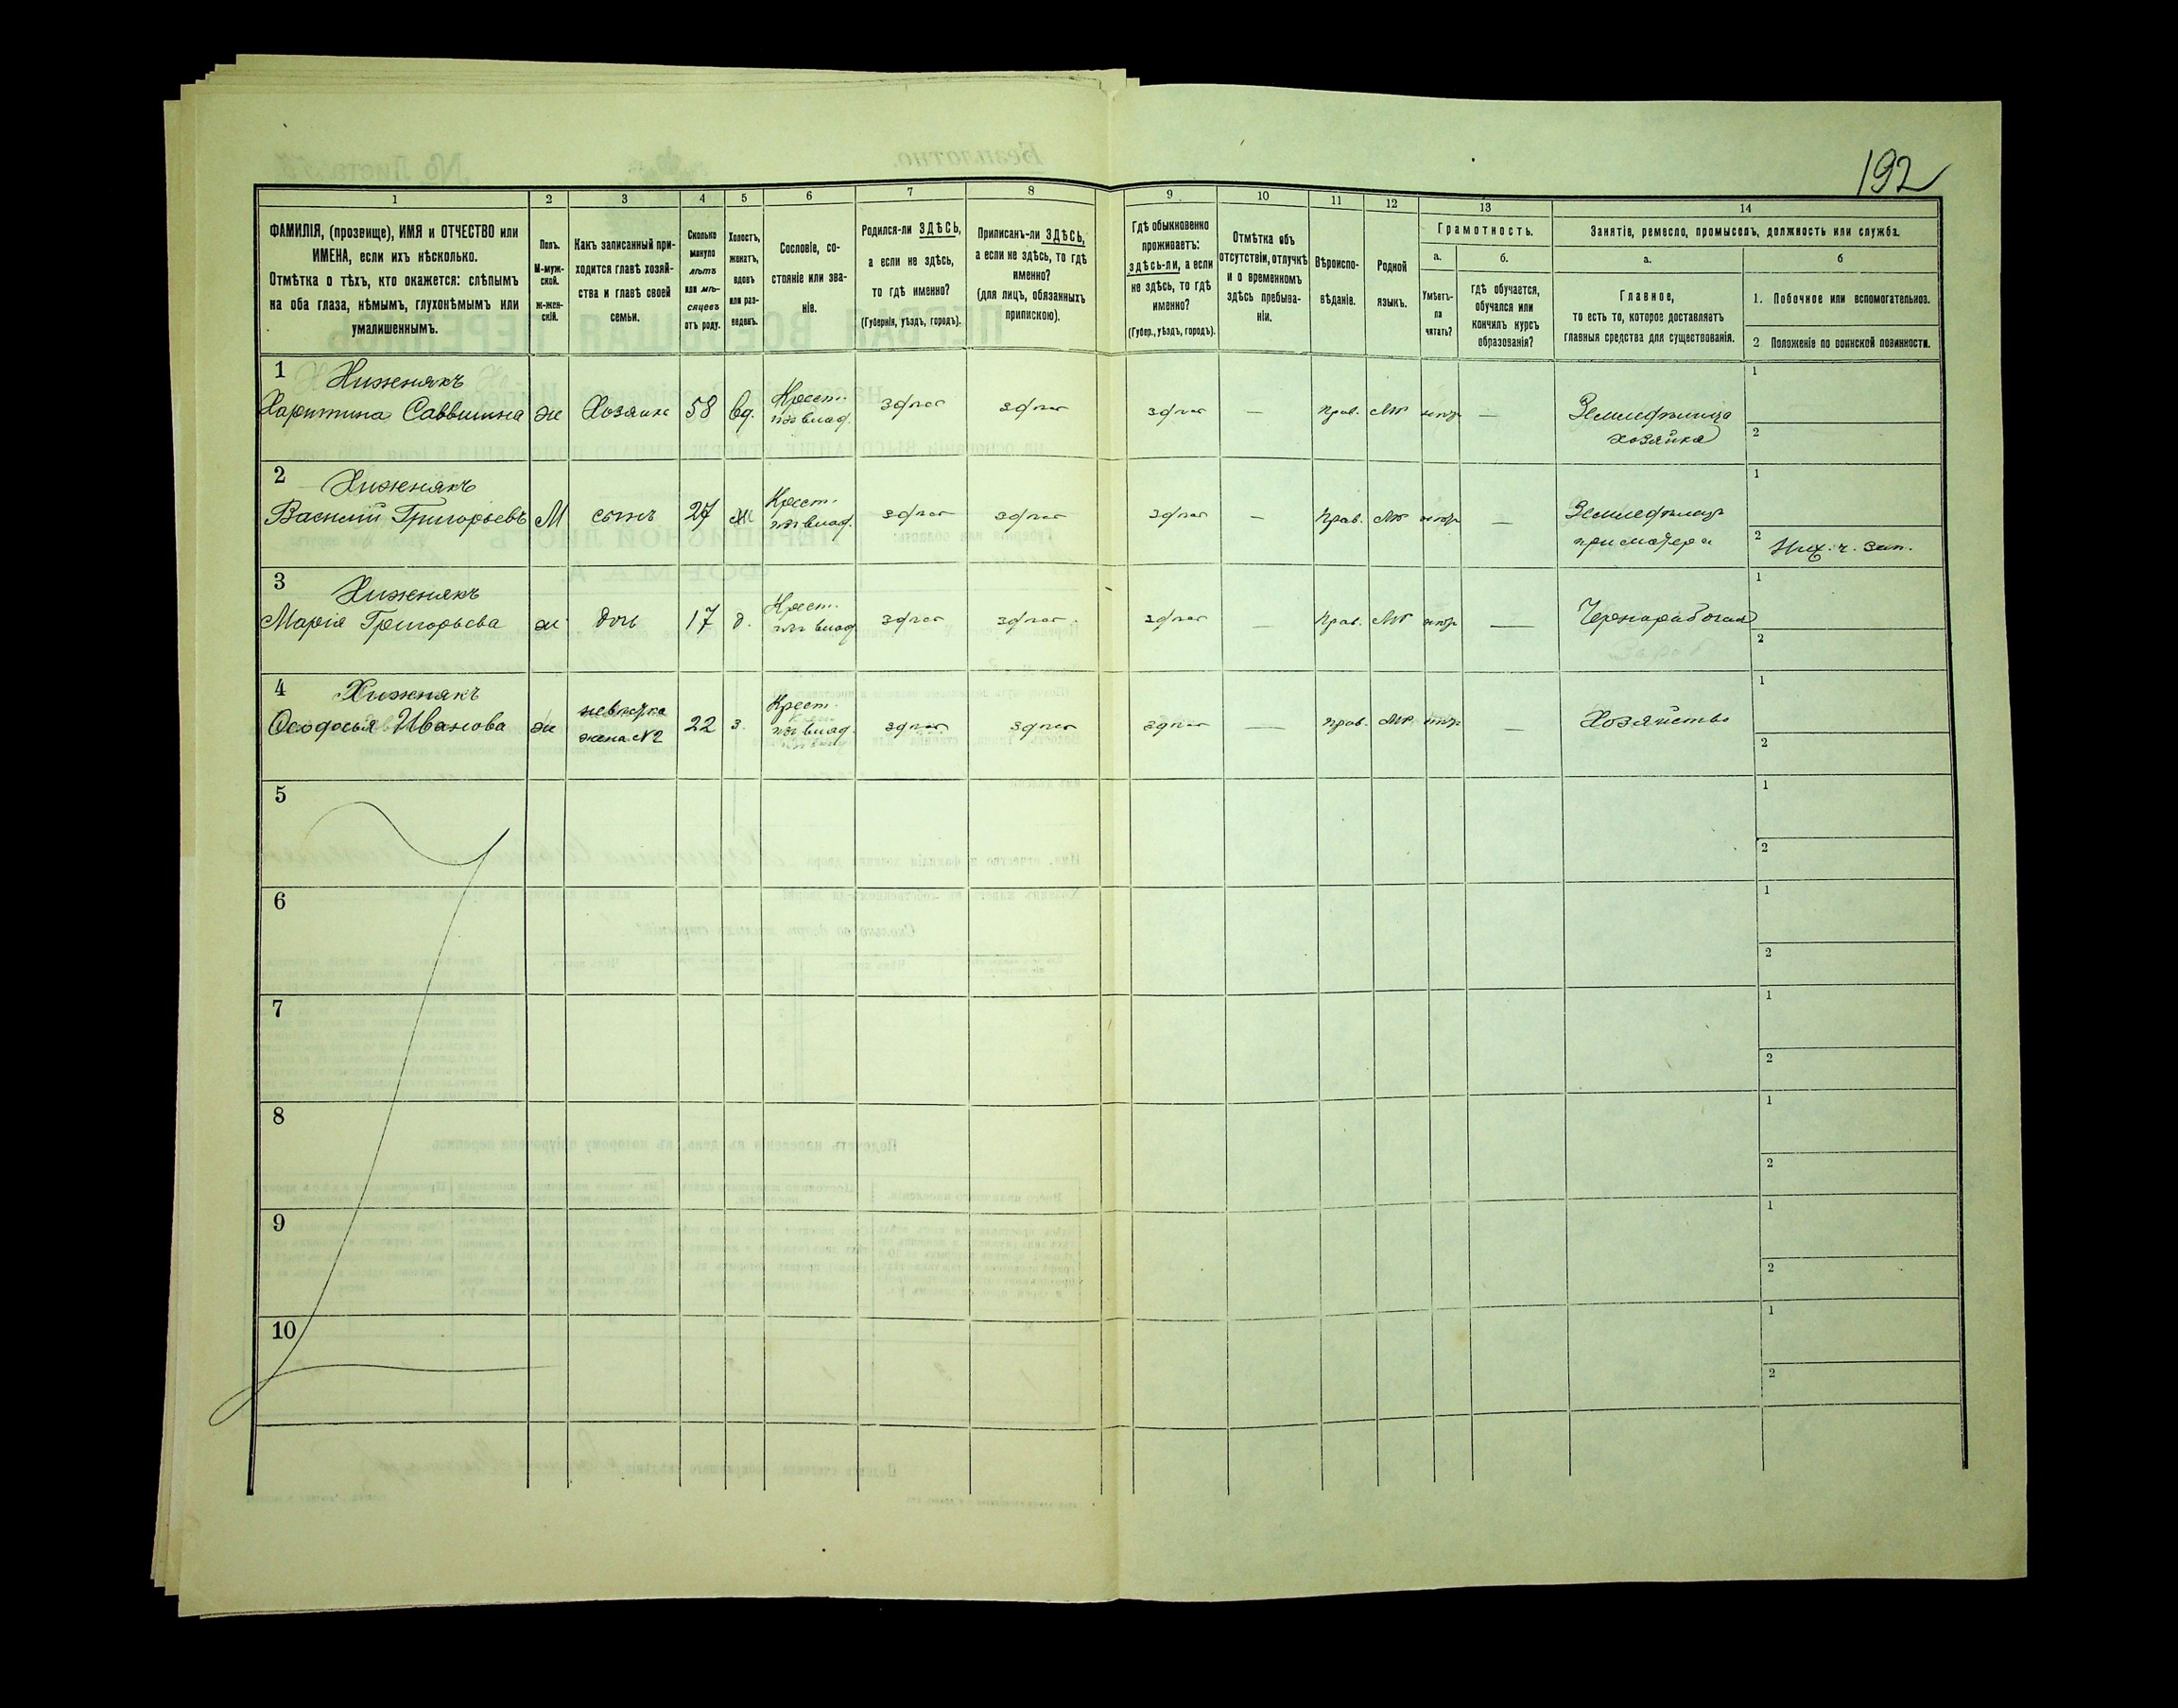 192
1
2
3
4
5
6
7
8
9
10
11
12
13
14
ФАМИЛІЯ, (прозвище), ИМЯ и ОТЧЕСТВО или
ИМЕНА, если ихъ нѣсколько.
Отмѣтка о тѣхъ, кто окажется: слѣпымъ
на оба глаза, нѣмымъ, глухонѣмымъ или
умалишеннымъ.
Полъ.
М-муж-
ской.
Ж-жен-
скій.
Какъ записанный при-
ходится главѣ хозяй-
ства и главѣ своей
семьи.
Сколько
минуло
лѣтъ
или мѣ-
сяцевъ
отъ роду.
Холостъ,
женатъ,
вдовъ
или раз-
веденъ.
Сословіе, со-
стояніе или зва-
ніе.
Родился-ли ЗДѢСЬ,
а если не здѣсь,
то гдѣ именно?
(Губернія, уѣздъ, городъ).
Приписанъ-ли ЗДѢСЬ,
а если не здѣсь, то гдѣ
именно?
(для лицъ, обязанныхъ
припискою).
Гдѣ обыкновенно
проживаетъ:
здѣсь-ли, а если
не здѣсь, то гдѣ
именно?
(Губер., уѣздъ, городъ).
Отмѣтка объ
отсутствіи, отлучкѣ
и о временномъ
здѣсь пребыва-
ніи.
Вѣроиспо-
вѣданіе.
Родной
языкъ.
Грамотность.
а.
Умѣетъ-
ли
читать?
б.
гдѣ обучается,
обучался или
кончилъ курсъ
образованія?
Занятіе, ремесло, промыселъ, должность или служба.
а.
Главное,
то есть то, которое доставляетъ
главныя средства для существованія.
б
1. Побочное или вспомогательное.
2 Положеніе по воинской повинности.
1 Хижнякъ
Харитина Саввишна ж Хозяйка 58 вд. Крест. изъ влад. здѣсь здѣсь здѣсь — прав. Мр нѣтъ — Земледѣлица хозяйка 1 2
2 Хижнякъ
Василій Григорьевъ М сынъ 27 ж Крест. изъ влад. здѣсь здѣсь здѣсь — прав. Мр нѣтъ — Земледѣлецъ при матери 1 2 Ниж. ч. зап.
3 Хижнякъ
Марія Григорьева ж дочь 17 д. Крест. изъ влад здѣсь здѣсь здѣсь — прав. Мр нѣтъ — Чернорабочая 1 2
4 Хижнякъ
Феодосья Иванова ж невѣстка жена №2 22 з. Крест. изъ влад. здѣсь здѣсь здѣсь — прав. Мр. нѣтъ — Хозяйство 1 2
5 1 2
6 1 2
7 1 2
8 1 2
9 1 2
10 1 2